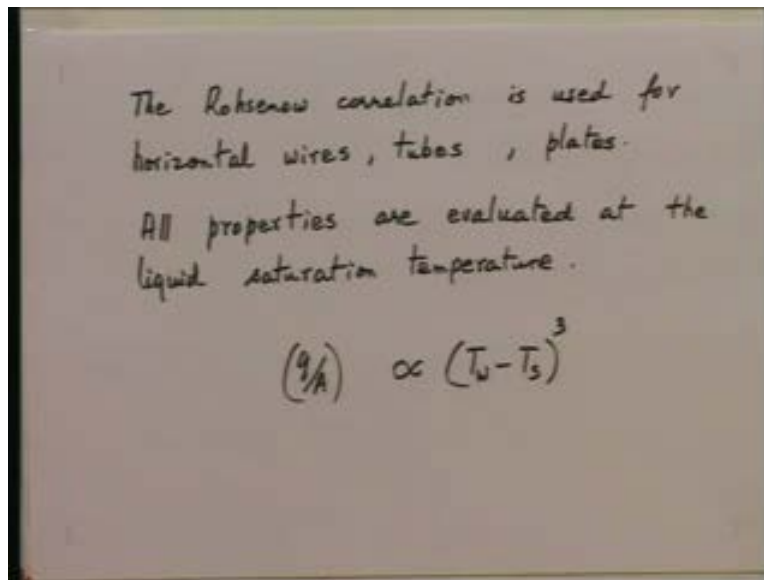 The Rohsenow correlation is used for
horizontal wires, tubes , plates.
All properties are evaluated at the
liquid saturation temperature.
(q/A) ∝ (Tw-Ts)³